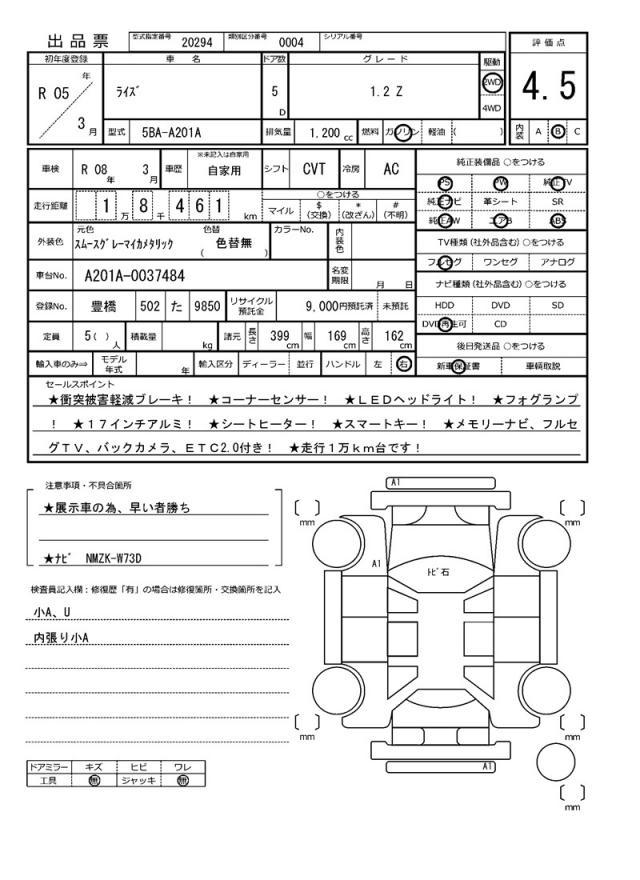 出品票 型式指定番号 20294 類別区分番号 0004 シリアル番号
評価点
4.5
内装 A B C
初年度登録 車名 ドア数 グレード 駆動
R 05 年 3 月 ライズ 5 D 1.2 Z 2WD 4WD
型式 5BA-A201A 排気量 1.200 cc 燃料 ガソリン 軽油 ( )
車検 R 08 年 3 月 車歴 ※未記入は自家用 自家用 シフト CVT 冷房 AC
走行距離 1 万 8 千 4 6 1 km ○をつける
マイル $ (交換) * (改ざん) # (不明)
外装色 元色 スムースグレーマイカメタリック 色替 ( 色替無 ) カラーNo. 内装色
車台No. A201A-0037484 名変期限 月 日
登録No. 豊橋 502 た 9850 リサイクル預託金 9,000円預託済 未預託
定員 5( ) 人 積載量 kg 諸元 長さ 399 cm 幅 169 cm 高さ 162 cm
輸入車のみ⇒ モデル年式 年 輸入区分 ディーラー 並行 ハンドル 左 右
純正装備品 ○をつける
PS PW 純正TV
純正ナビ 革シート SR
純正AW エアB ABS
TV種類 (社外品含む) ○をつける
フルセグ ワンセグ アナログ
ナビ種類 (社外品含む) ○をつける
HDD DVD SD
DVD再生可 CD
後日発送品 ○をつける
新車保証書 車輌取説
セールスポイント
★衝突被害軽減ブレーキ！ ★コーナーセンサー！ ★ＬＥＤヘッドライト！ ★フォグランプ
！ ★１７インチアルミ！ ★シートヒーター！ ★スマートキー！ ★メモリーナビ、フルセ
グＴＶ、バックカメラ、ＥＴＣ2.0付き！ ★走行１万ｋｍ台です！
注意事項・不具合箇所
★展示車の為、早い者勝ち
★ナビ NMZK-W73D
検査員記入欄：修復歴「有」の場合は修復箇所・交換箇所を記入
小A、U
内張り小A
ドアミラー キズ ヒビ ワレ
工具 無 ジャッキ 無
A1
[ ] mm
[ ] mm
A1
トビ石
[ ] mm
[ ] mm
A1
[ ] mm